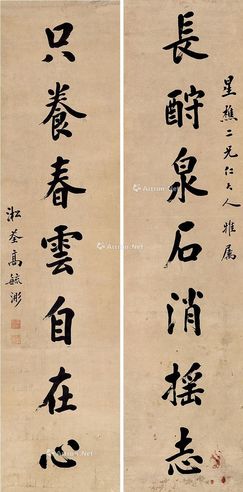 星樵二兄仁大人雅属
長酧泉石消摇志
只養春雲自在心
淞荃高毓浵